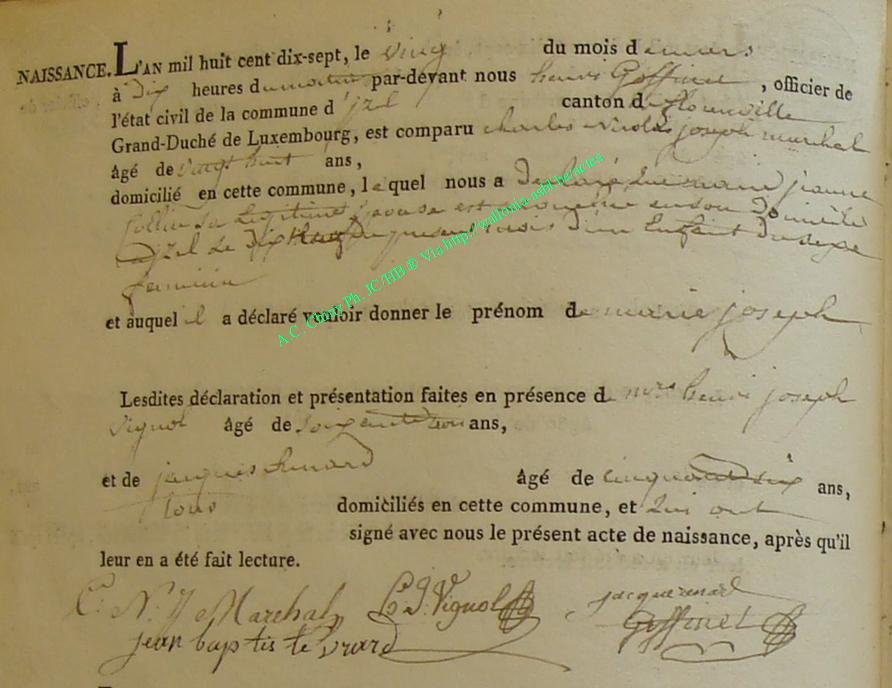 NAISSANCE. L'AN mil huit cent dix-sept, le vingt du mois de mars
à dix heures du matin par-devant nous henri Goffinet, officier de
l'état civil de la commune d'jzel canton de florenville
Grand-Duché de Luxembourg, est comparu charles nicolas joseph marchal
âgé de vingt huit ans,
domicilié en cette commune, lequel nous a declaré que marie jeanne
Collin sa legitime epouse est accouchée en son domicile
a jzel le dix huit du present mois d'un Enfant du sexe
feminin
et auquel il a déclaré vouloir donner le prénom de marie joseph
Lesdites déclaration et présentation faites en présence de mrs henri joseph
Vignol âgé de soixante trois ans,
et de jacques henard âgé de cinquante six ans,
tous domiciliés en cette commune, et qui ont
signé avec nous le présent acte de naissance, après qu'il
leur en a été fait lecture.
C. N. J. Marchal H. J. Vignol
Goffinet
jean baptiste
A.C. Chiny Ph. JC/HB © Via http://wallonia-asbl.be/actes